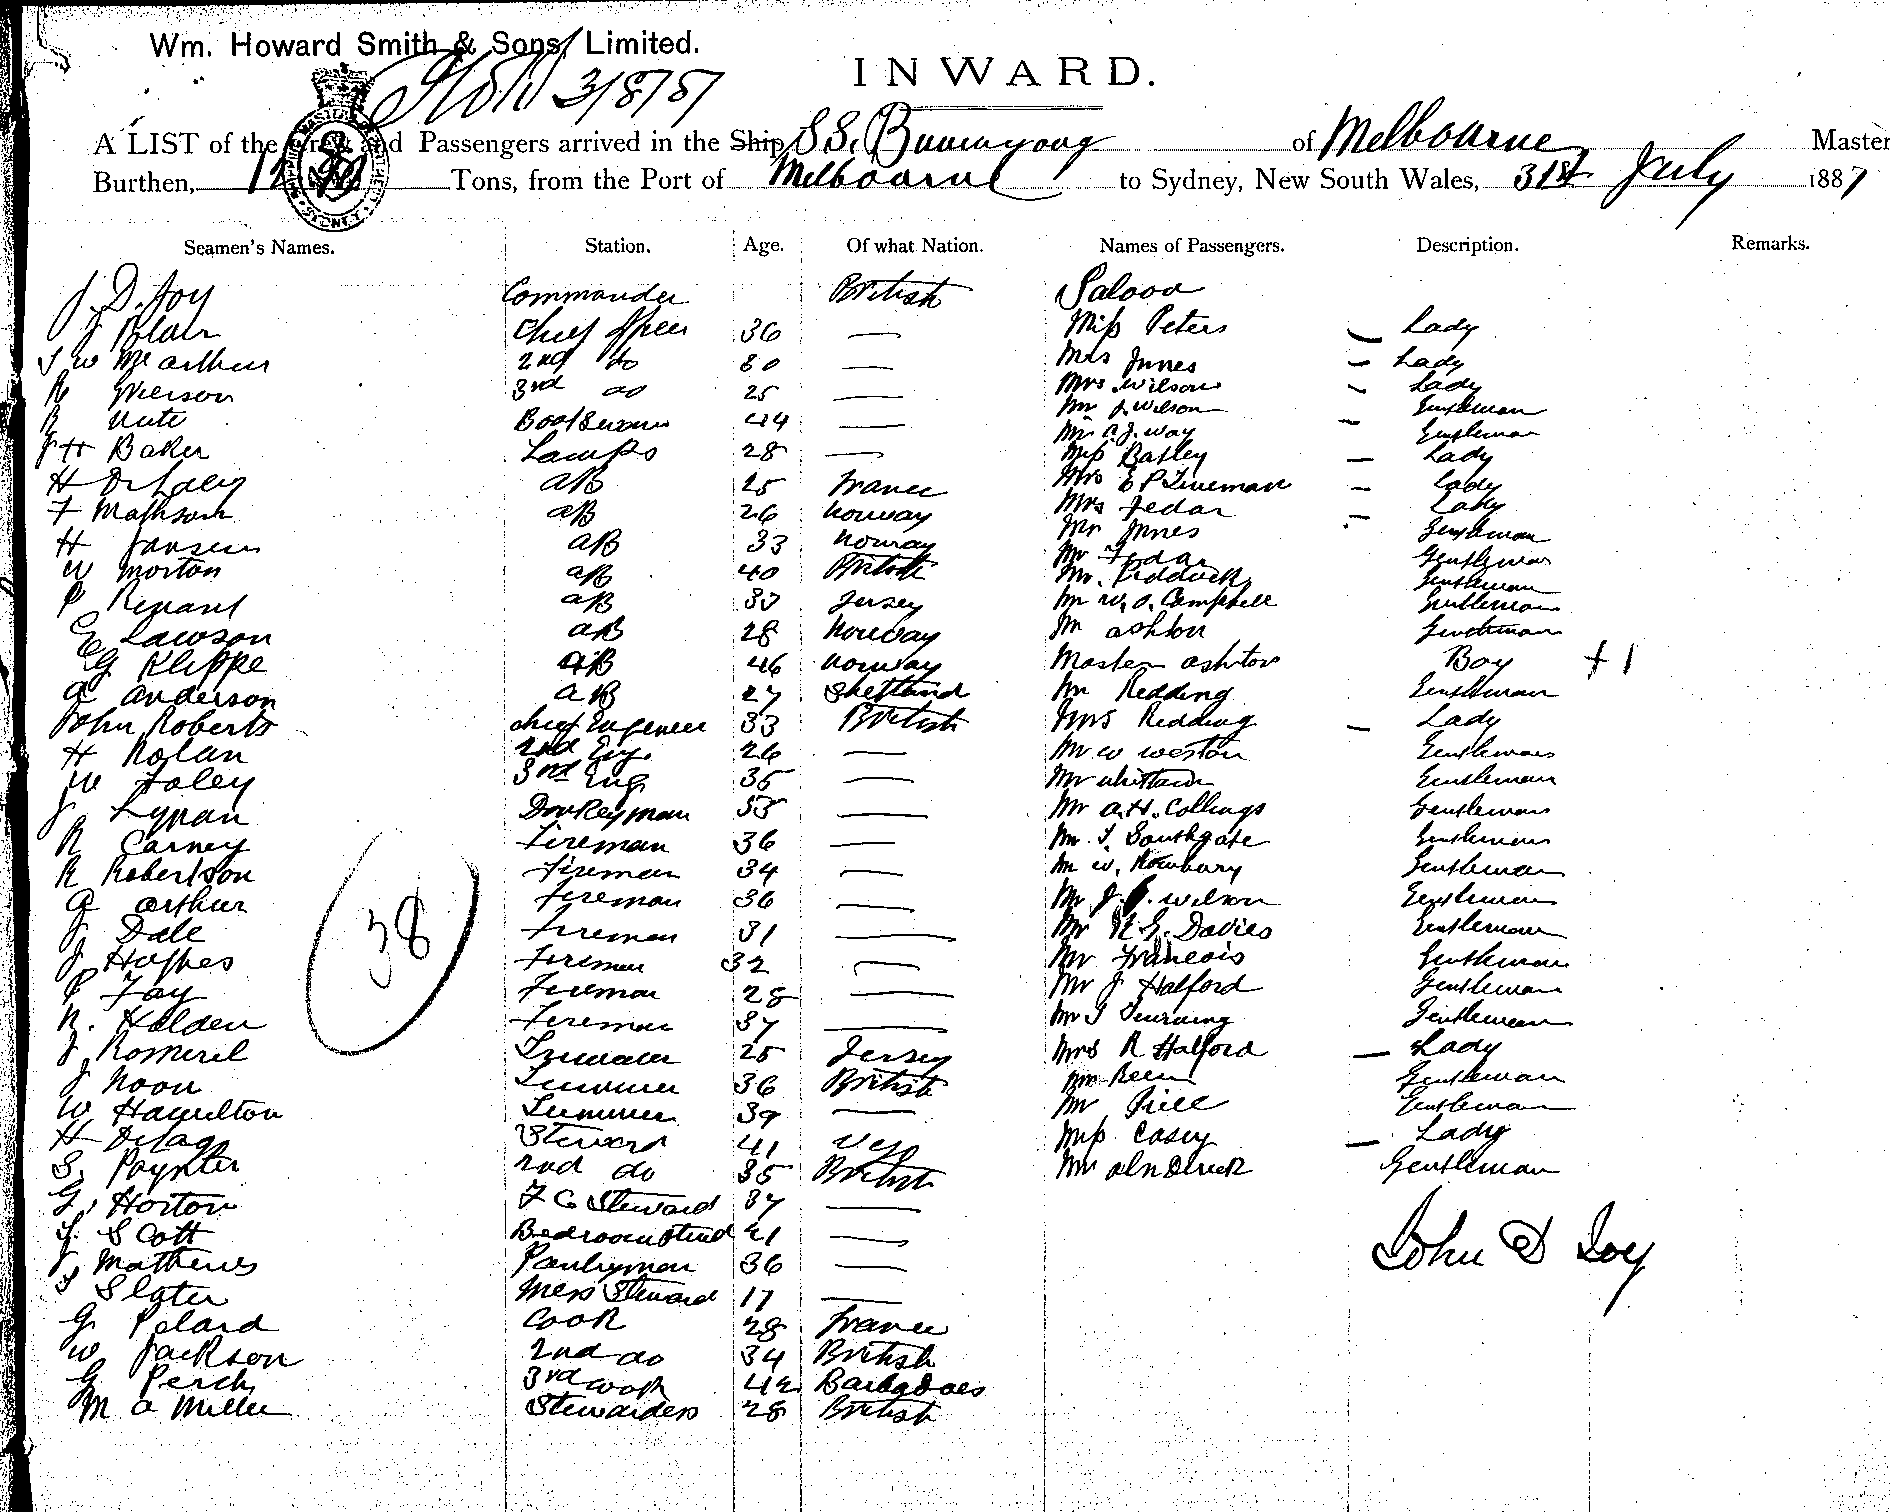 Wm. Howard Smith & Sons, Limited.
3/8/87
INWARD.
A LIST of the Crew and Passengers arrived in the Ship SS. Buninyong of Melbourne Master
Burthen, Tons, from the Port of Melbourne to Sydney, New South Wales, 31st July 1887
Seamen's Names. Station. Age. Of what Nation. Names of Passengers. Description. Remarks.
J. D. Joy Commander British Saloon
J Blair Chief Officer 36 — Miss Peters — Lady
J W McArthur 2nd do 30 — Mrs Innes — Lady
R Grierson 3rd do 25 — Mrs Wilson — Lady
R Nute Boatswain 44 — Mr J. Wilson Gentleman
J H Baker Lamps 28 — Mr A. J. Way — Gentleman
Miss Batley — Lady
H AB 25 France Mrs E P Tineman — Lady
F Mathson AB 26 Norway Mrs Fedar — Lady
H Jansen AB 33 Norway Mr Innes Gentleman
W Morton AB 40 British Mr Fedar Gentleman
Mr. Piddock Gentleman
P Renant AB 33 Jersey Mr W. O. Campbell Gentleman
E Lawson AB 28 Norway Mr Ashton Gentleman
G Klippe AB 46 Norway Master Ashton Boy + 1
A Anderson AB 27 Shetland Mr Redding Gentleman
John Roberts Chief Engineer 33 British Mrs Redding — Lady
H Nolan 2nd Eng. 26 — Mr W Weston Gentleman
W Foley 3rd Eng 35 — Mr Gentleman
J Lynan Donkeyman 55 — Mr A. H. Collings Gentleman
R Carney Fireman 36 — Mr T. Southgate Gentleman
R Robertson Fireman 34 — Mr W. Newbury Gentleman
A Arthur Fireman 36 — Mr J. G. Wilson Gentleman
J Dale Fireman 31 — Mr H. G. Davies Gentleman
38
J Hughes Fireman 32 — Mr Francois Gentleman
P Fay Fireman 28 — Mr J Halford Gentleman
N. Holden Fireman 37 — Mr Gentleman
J Romeril Trimmer 25 Jersey Mrs R Halford — Lady
J Noon Trimmer 36 British Mr Gentleman
W Hamilton Trimmer 39 — Mr Gentleman
H Steward 41 Miss Casey — Lady
S. Poynter 2nd do 35 British Mr Gentleman
G. Horton F C Steward 37 —
S. Scott Bedroom Stewd 21 —
John D Joy
J. Mathews Pantryman 36 —
T Slater Mess Steward 17 —
G. Pelard Cook 28 France
W Jackson 2nd do 34 British
G Perch 3rd Cook 42 Barbadoes
M A Miller Stewardess 28 British